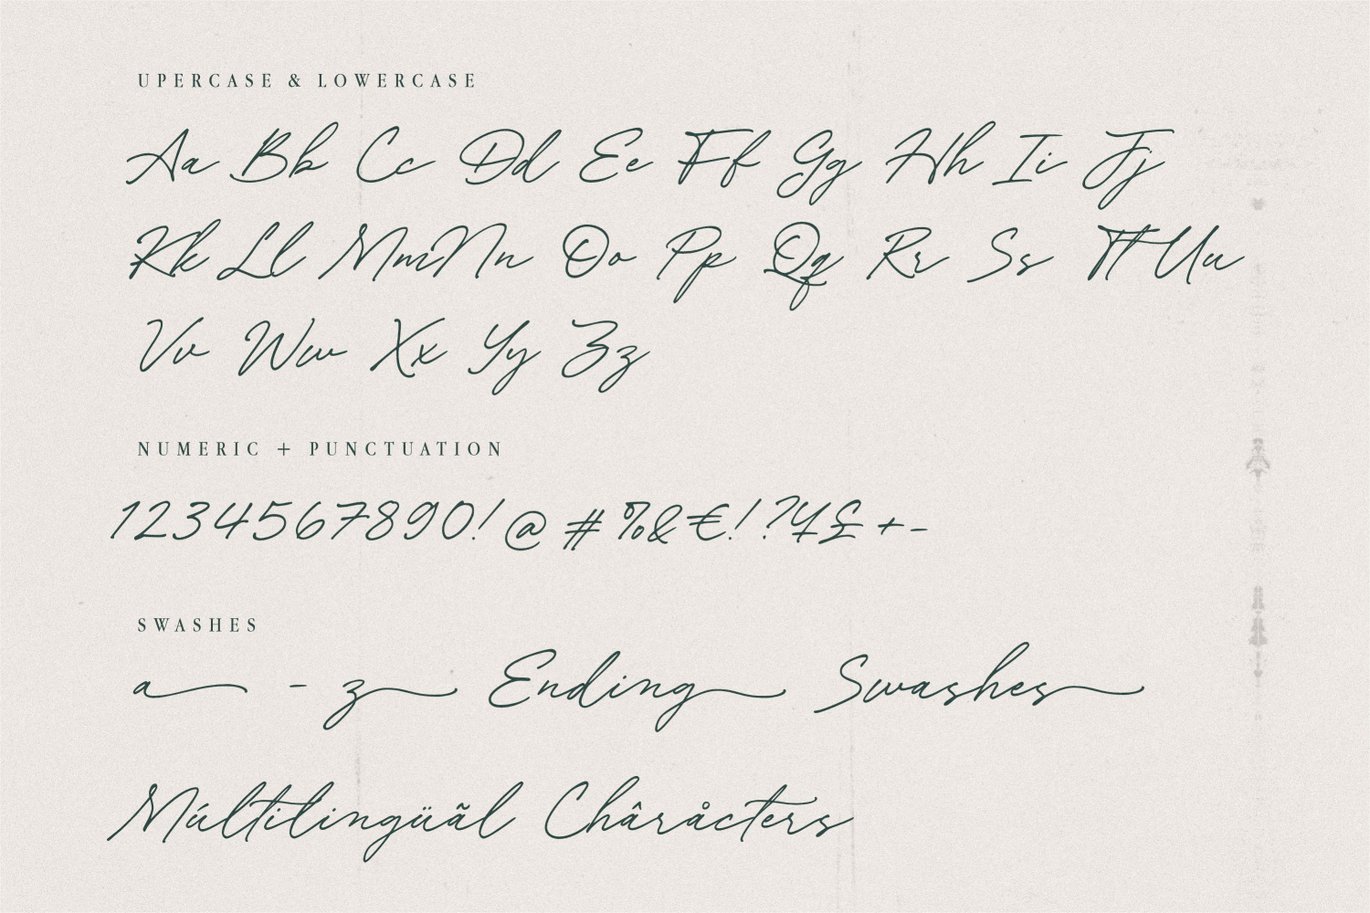 UPERCASE & LOWERCASE
Aa Bb Cc Dd Ee Ff Gg Hh Ii Jj
Kk Ll Mm Nn Oo Pp Qq Rr Ss Tt Uu
Vv Ww Xx Yy Zz
NUMERIC + PUNCTUATION
1234567890! @ # %&€!?¥£ +-
SWASHES
a - z Ending Swashes
Múltilingüãl Châråcters